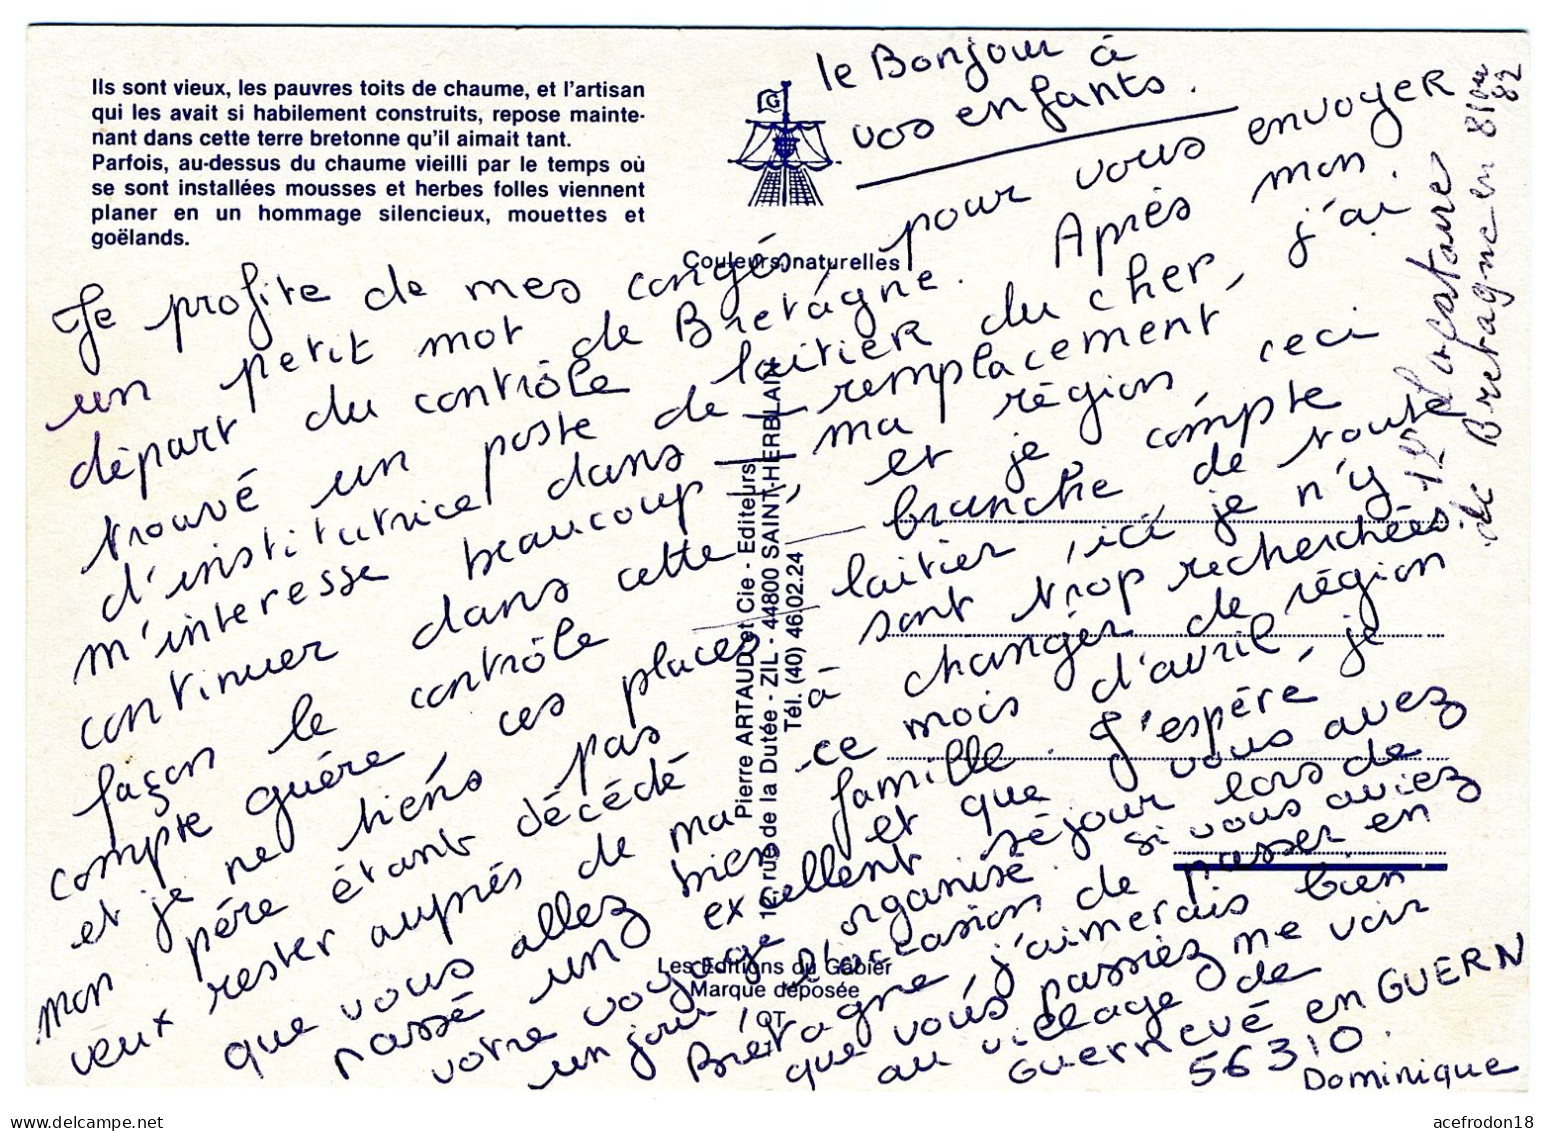 Ils sont vieux, les pauvres toits de chaume, et l'artisan
qui les avait si habilement construits, repose mainte-
nant dans cette terre bretonne qu'il aimait tant.
Parfois, au-dessus du chaume vieilli par le temps où
se sont installées mousses et herbes folles viennent
planer en un hommage silencieux, mouettes et
goëlands.
le Bonjour à
vos enfants.
Couleurs naturelles
Je profite de mes congés, pour vous envoyer
un petit mot de Bretagne. Après mon
départ du contrôle laitier du cher, j'ai
trouvé un poste de remplacement,
d'institutrice dans ma région ceci
m'interesse beaucoup, et je compte
continuer dans cette branche de toute
façon le contrôle laitier, ici je n'y
compte guére, ces places sont trop recherchées
et je ne tiens pas à changer de région
mon pére étant décédé ce mois d'avril, je
veux rester auprés de ma famille. J'espére,
que vous allez bien et que vous avez
passé un excellent séjour lors de
votre voyage organisé. si vous aviez
un jour l'occasion de passer en
Bretagne, j'aimerais bien
que vous passiez me voir
au village de
Guernevé en GUERN
56310.
Dominique
Pierre ARTAUD et Cie - Editeurs
10, rue de la Dutée - ZIL - 44800 SAINT-HERBLAIN
Tél. (40) 46.02.24
Les Editions du Gabier
Marque déposée
QT
Locataire
de Bretagne en 81 ou
82
acefrodon18